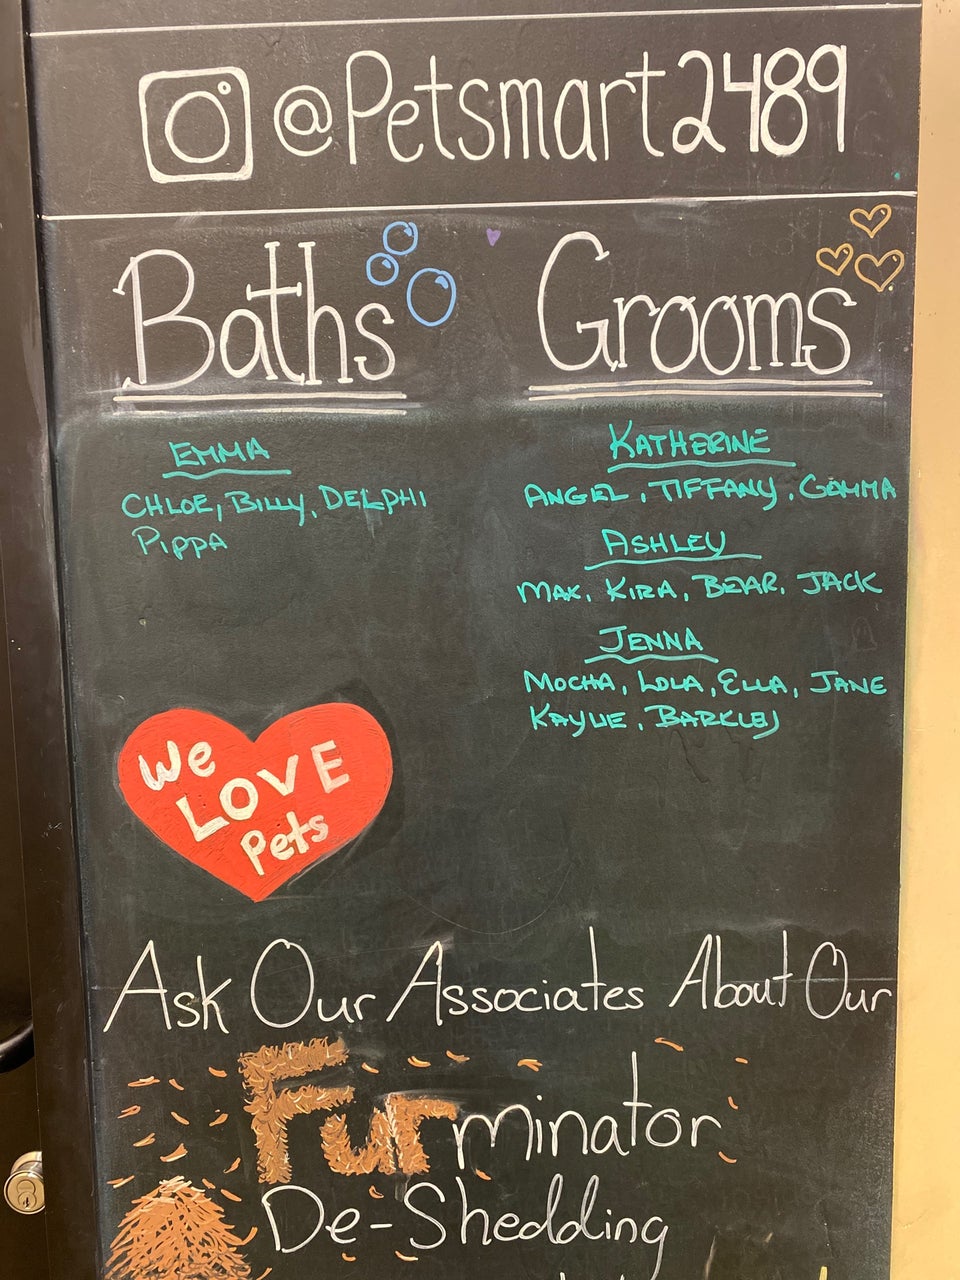 @Petsmart2489
Baths
EMMA
CHLOE, BILLY, DELPHI
PIPPA
Grooms
KATHERINE
ANGEL, TIFFANY, GEMMA
ASHLEY
MAX, KIRA, BEAR, JACK
JENNA
MOCHA, LOLA, ELLA, JANE
KAYLIE, BARKLEY
We
LOVE
Pets
Ask Our Associates About Our
Furminator
De-Shedding